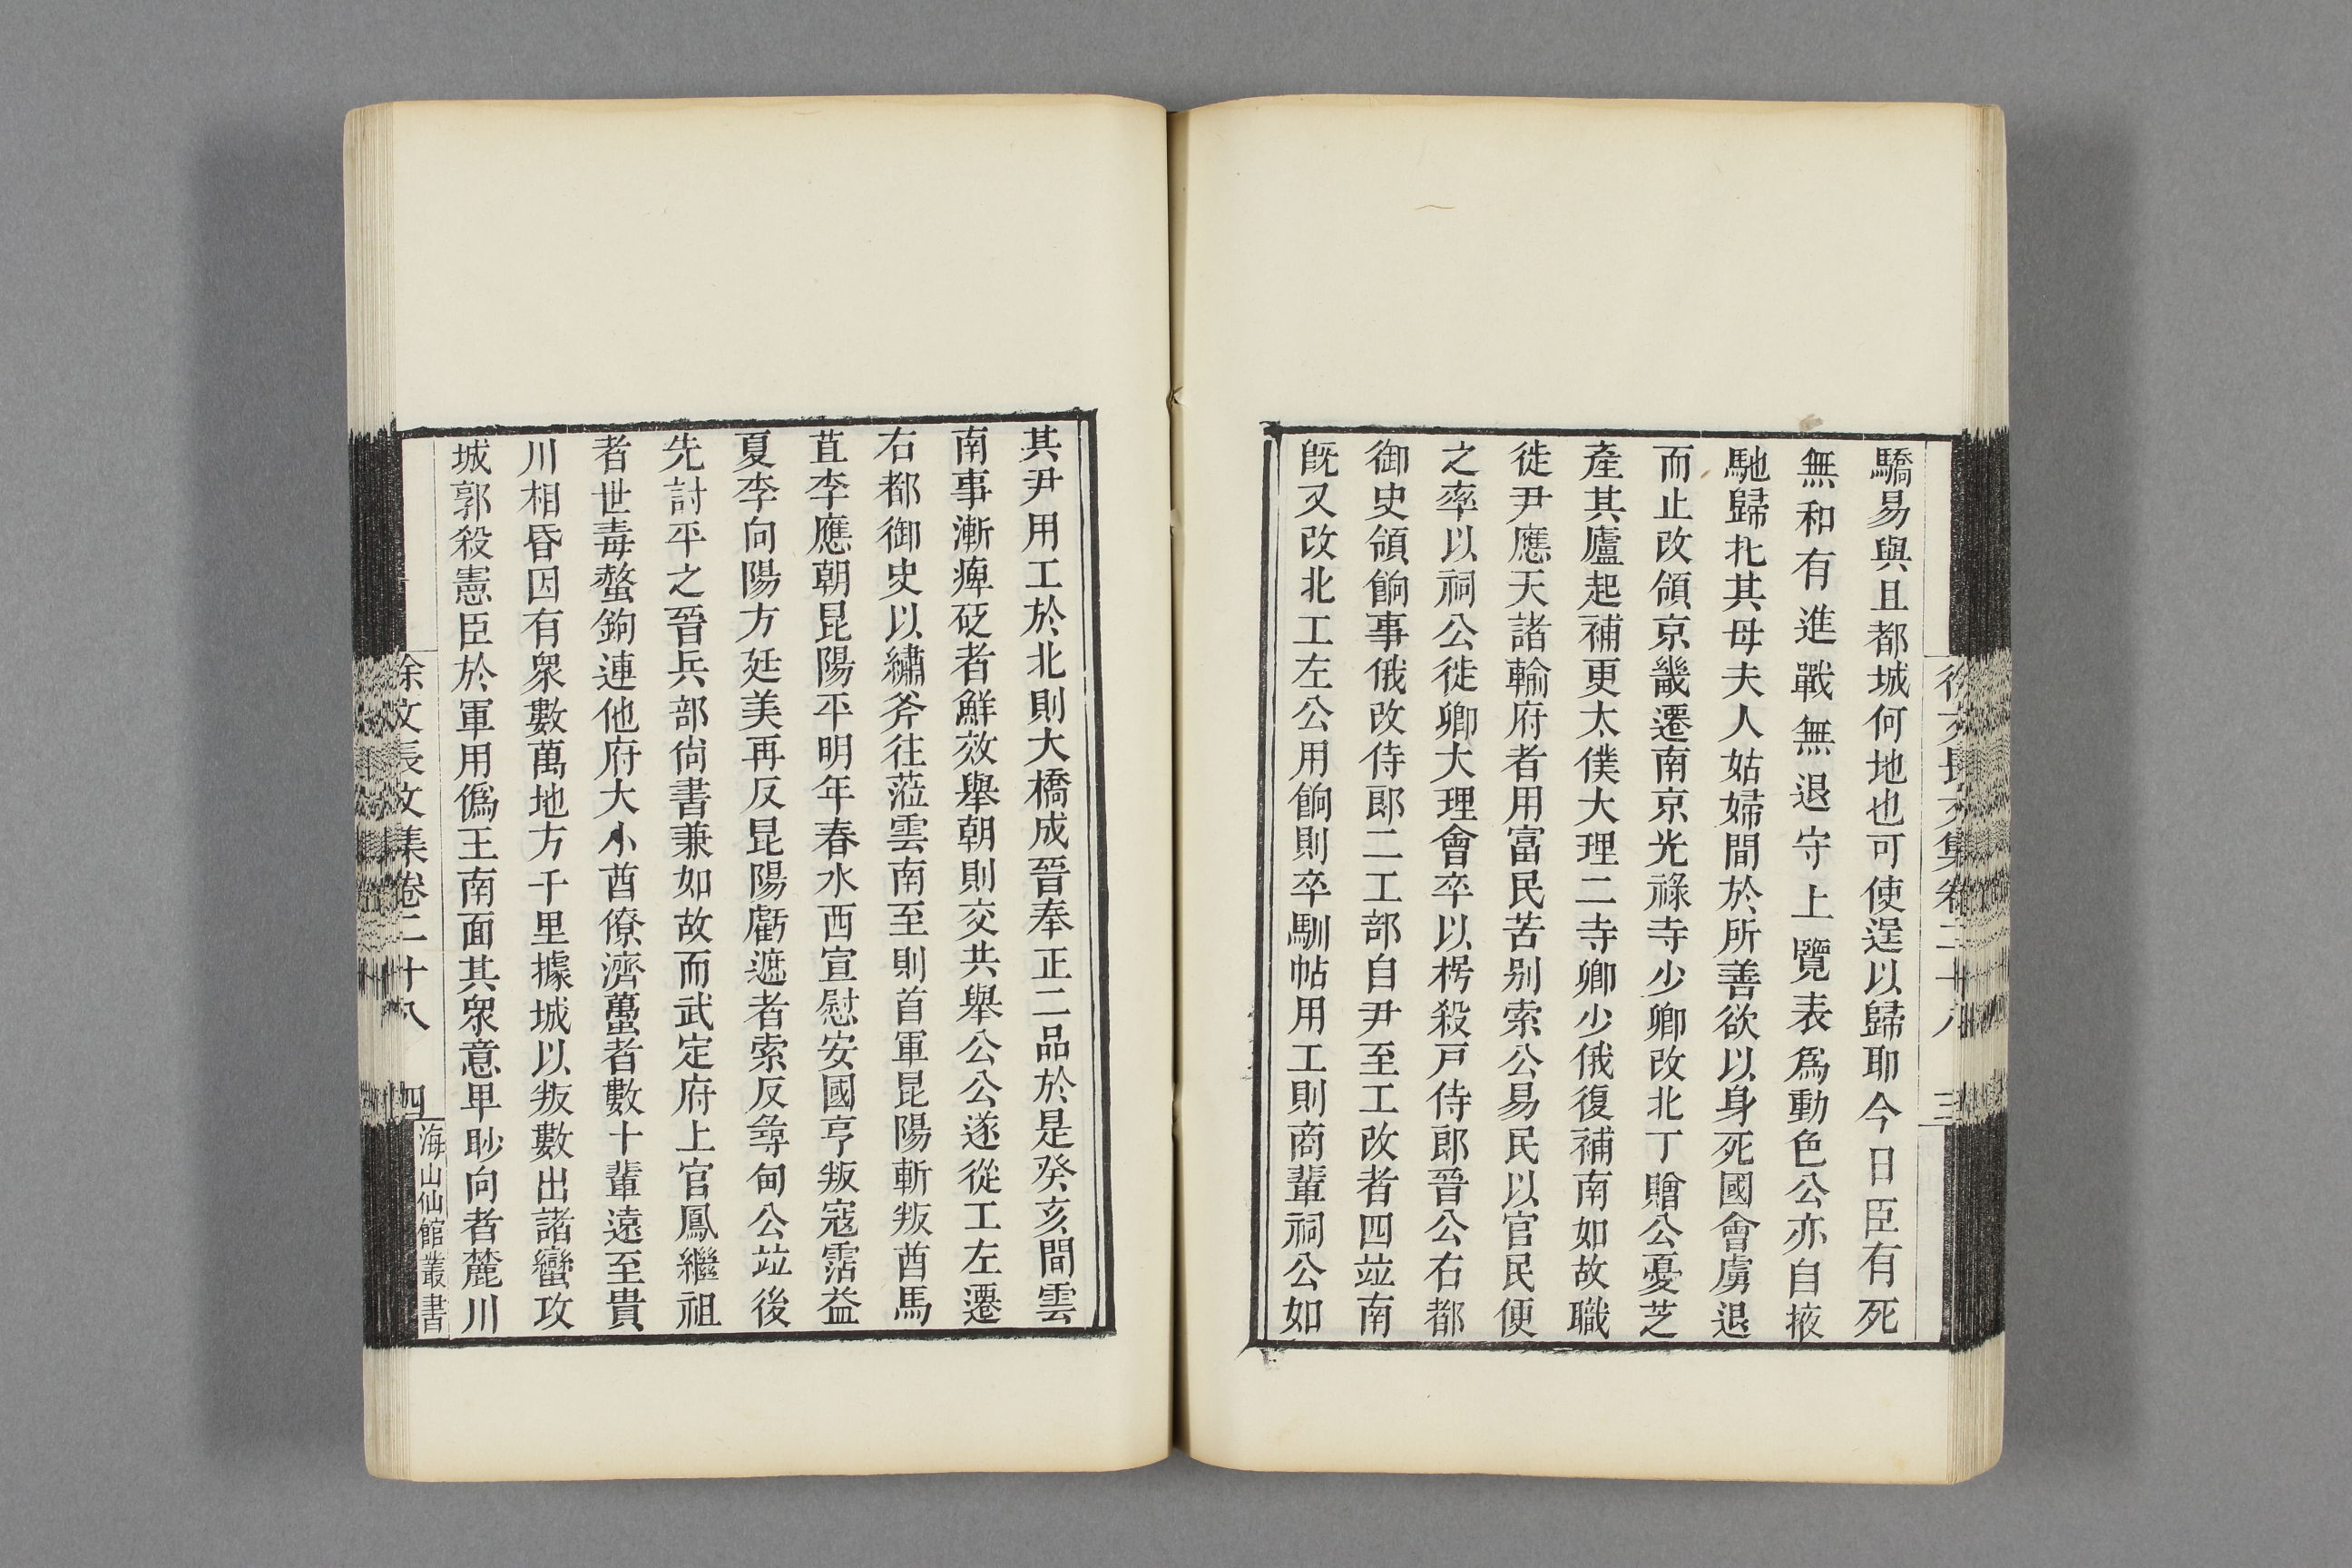 驕易與且都城何地也可使逞以歸耶今日臣有死
無和有進戰無退守上覽表爲動色公亦自掖
馳歸扎其母夫人姑婦間於所善欲以身死國會虜退
而止改領京畿遷南京光祿寺少卿改北丁贈公憂芝
產其廬起補更太僕大理二寺卿少俄復補南如故職
徙尹應天諸輸府者用富民苦别索公易民以官民便
之率以祠公徙卿大理會卒以楞殺戸侍郎晉公右都
御史領餉事俄改侍郎二工部自尹至工改者四竝南
旣又改北工左公用餉則卒馴帖用工則商輩祠公如
徐文長文集卷二十八 三
其尹用工於北則大橋成晉奉正二品於是癸亥間雲
南事漸痺砭者鮮效舉朝則交共舉公公遂從工左遷
右都御史以繡斧往蒞雲南至則首軍昆陽斬叛酋馬
苴李應朝昆陽平明年春水西宣慰安國亨叛寇霑益
夏李向陽方廷美再反昆陽虧遮者索反尋甸公竝後
先討平之晉兵部尙書兼如故而武定府上官鳳繼祖
者世毒螫鉤連他府大小酋僚濟蠆者數十輩遠至貴
川相昏因有衆數萬地方千里據城以叛數出諸蠻攻
城郭殺憲臣於軍用僞王南面其衆意卑眇向者麓川
徐文長文集卷二十八 四
海山仙館叢書